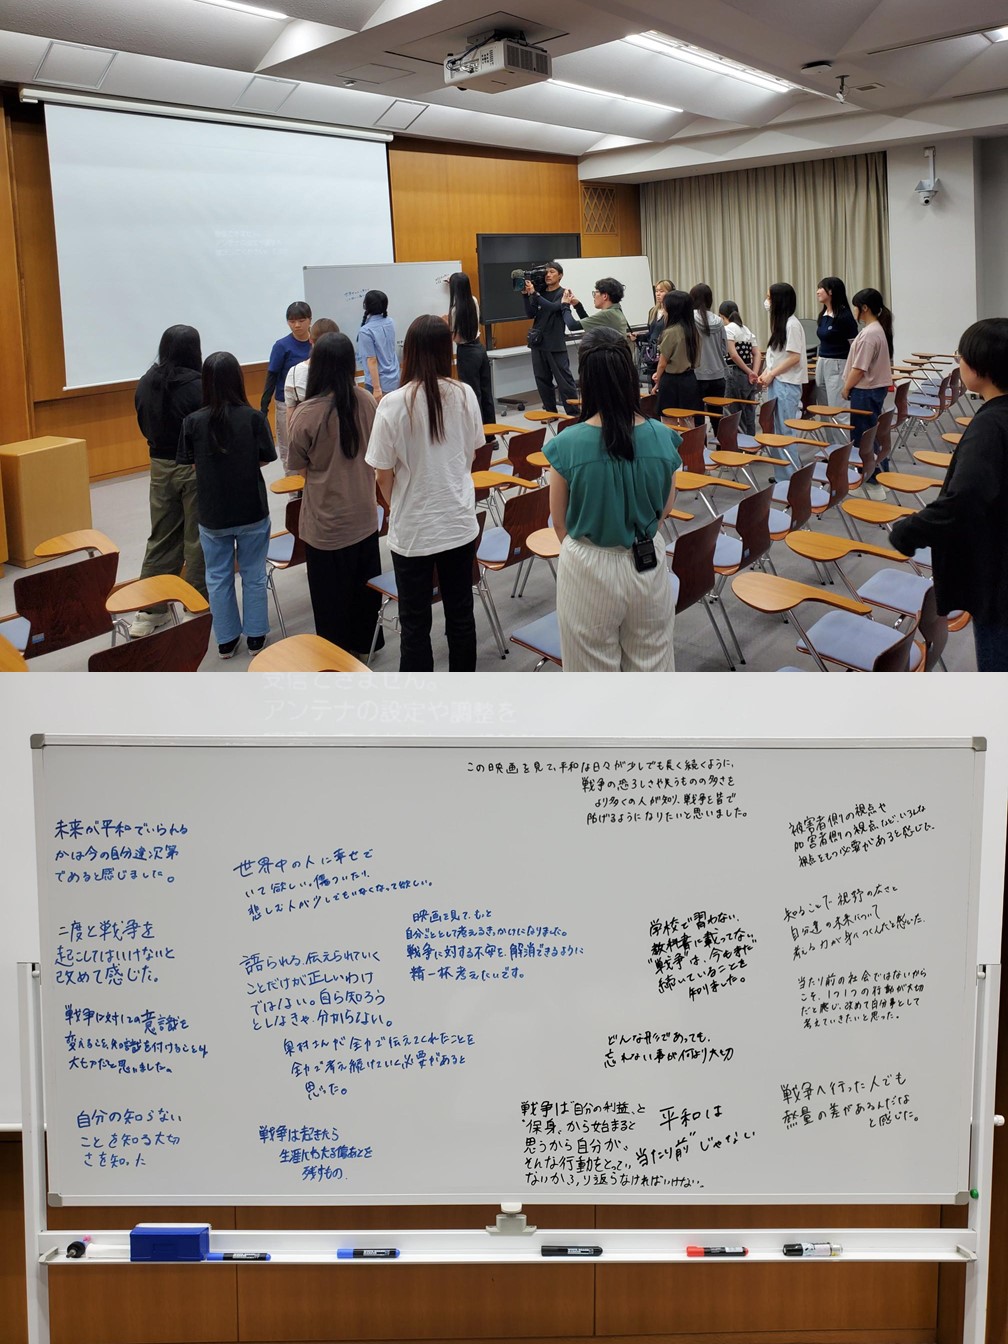 受信できません。
アンテナの設定や調整を
この映画を見て、平和な日々が少しでも長く続くように、
戦争の恐ろしさや失うものの多さを
より多くの人が知り、戦争を皆で
防げるようになりたいと思いました。
未来が平和でいられる
かは今の自分達次第
であると感じました。
二度と戦争を
起こしてはいけないと
改めて感じた。
戦争に対しての意識を
変えること、知識を付けることも
大切だと思いました。
自分の知らない
ことを知る大切
さを知った
世界中の人に幸せで
いて欲しい。傷ついたり、
悲しむ人が少しでもいなくなって欲しい。
語られる、伝えられていく
ことだけが正しいわけ
ではない。自ら知ろう
としなきゃ、分からない。
奥村さんが全力で伝えてくれたことを
全力で考え続けていく必要があると
思った。
戦争は起きたら
生涯にわたる傷あとを
残すもの、
映画を見て、もっと
自分ごととして考えるきっかけになりました。
戦争に対する不安を、解消できるように
精一杯考えたいです。
学校で習わない、
教科書に載ってない
"戦争"は、今もまだ
続いていることを
知りました。
どんな形であっても、
忘れない事が何より大切
戦争は"自分の利益"と
"保身"から始まると
思うから自分が、
そんな行動をとって
ないか、ふり返らなければいけない。
平和は
"当たり前"じゃない
被害者側の視点や
加害者側の視点など、いろんな
視点をもつ必要があると感じた。
知ることで、視野の広さと
自分達の未来について
考える力が身につくんだと思いた。
当たり前の社会ではないから
こそ、1つ1つの行動が大切
だと感じ、改めて自分事として
考えていきたいと思った。
戦争へ行った人でも
熱量の差があるんだな
と感じた。